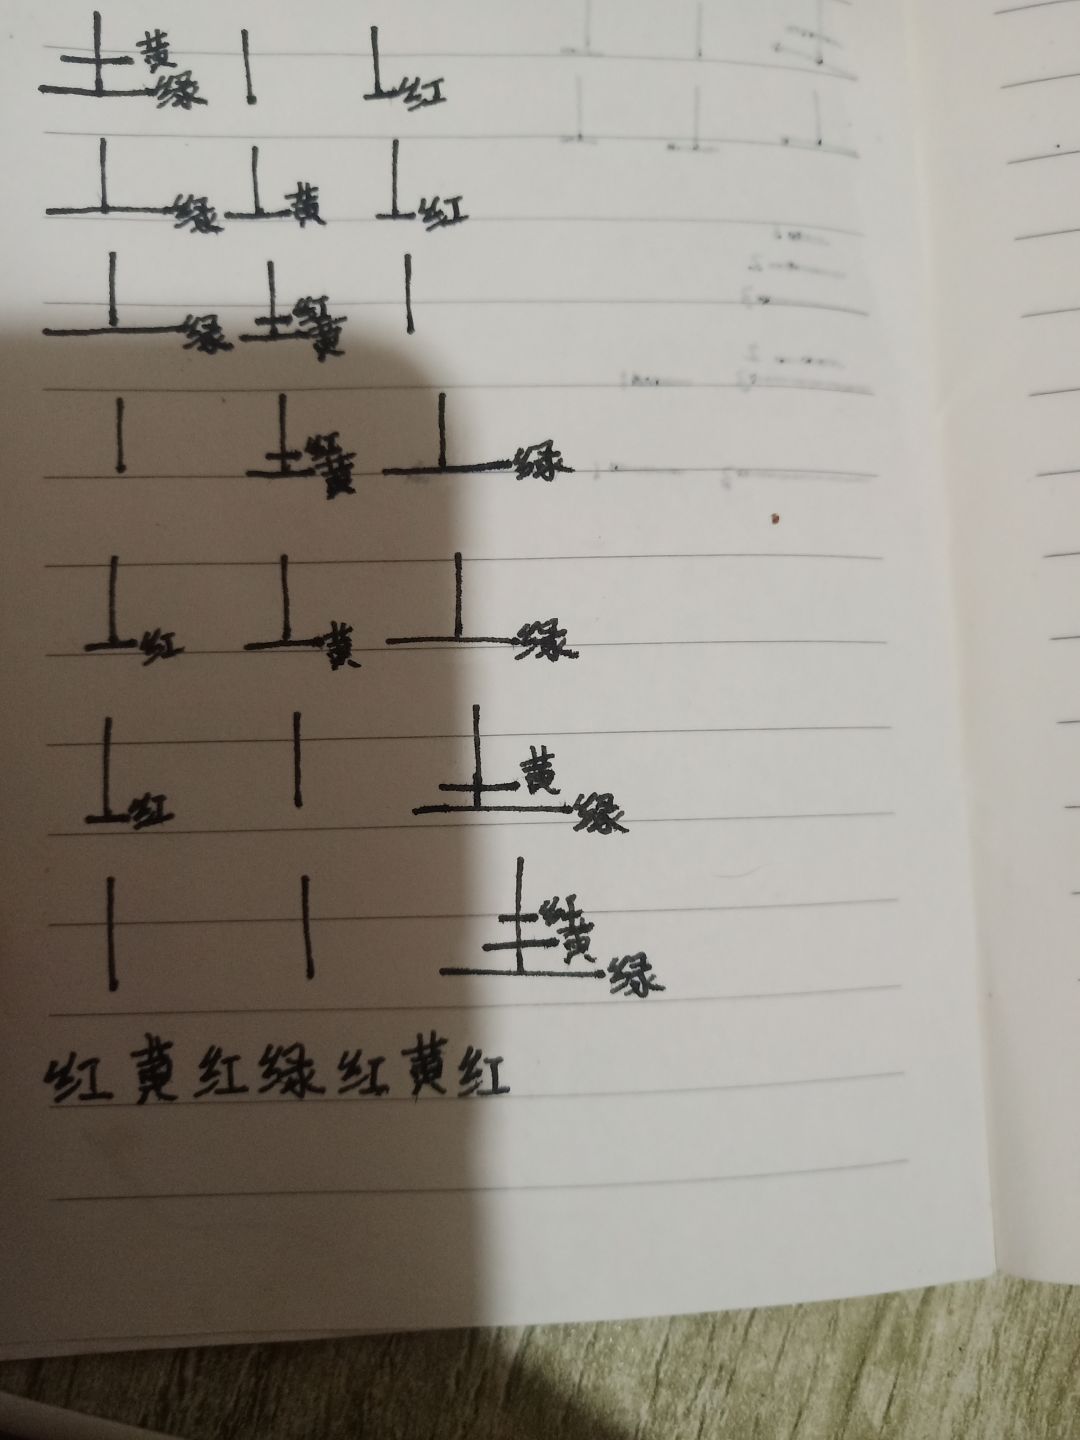 黄
绿 红
绿 黄 红
绿 红
黄
红
黄 绿
红 黄 绿
黄
红 绿
红
黄
绿
红黄红绿红黄红